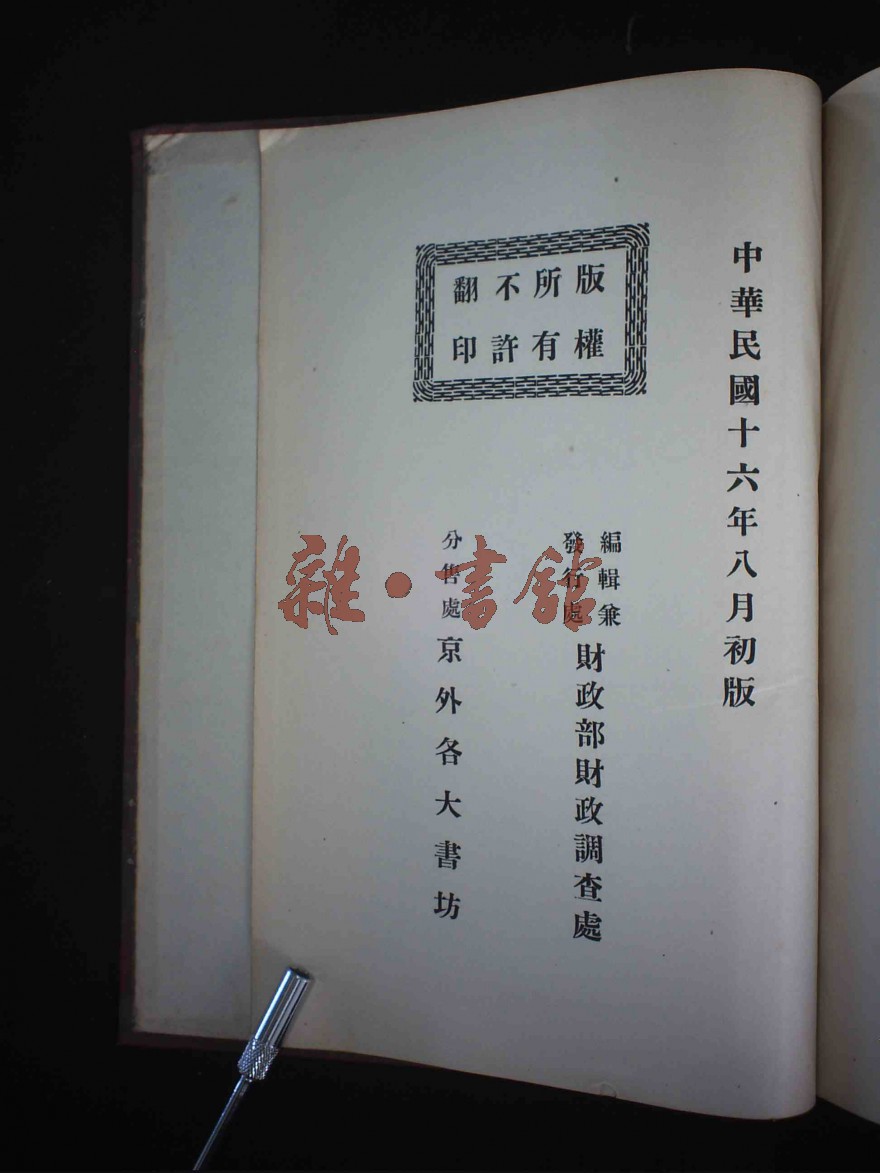 中華民國十六年八月初版
版權所有不許翻印
編輯兼
發行處
財政部財政調查處
分售處
京外各大書坊
雜·書館